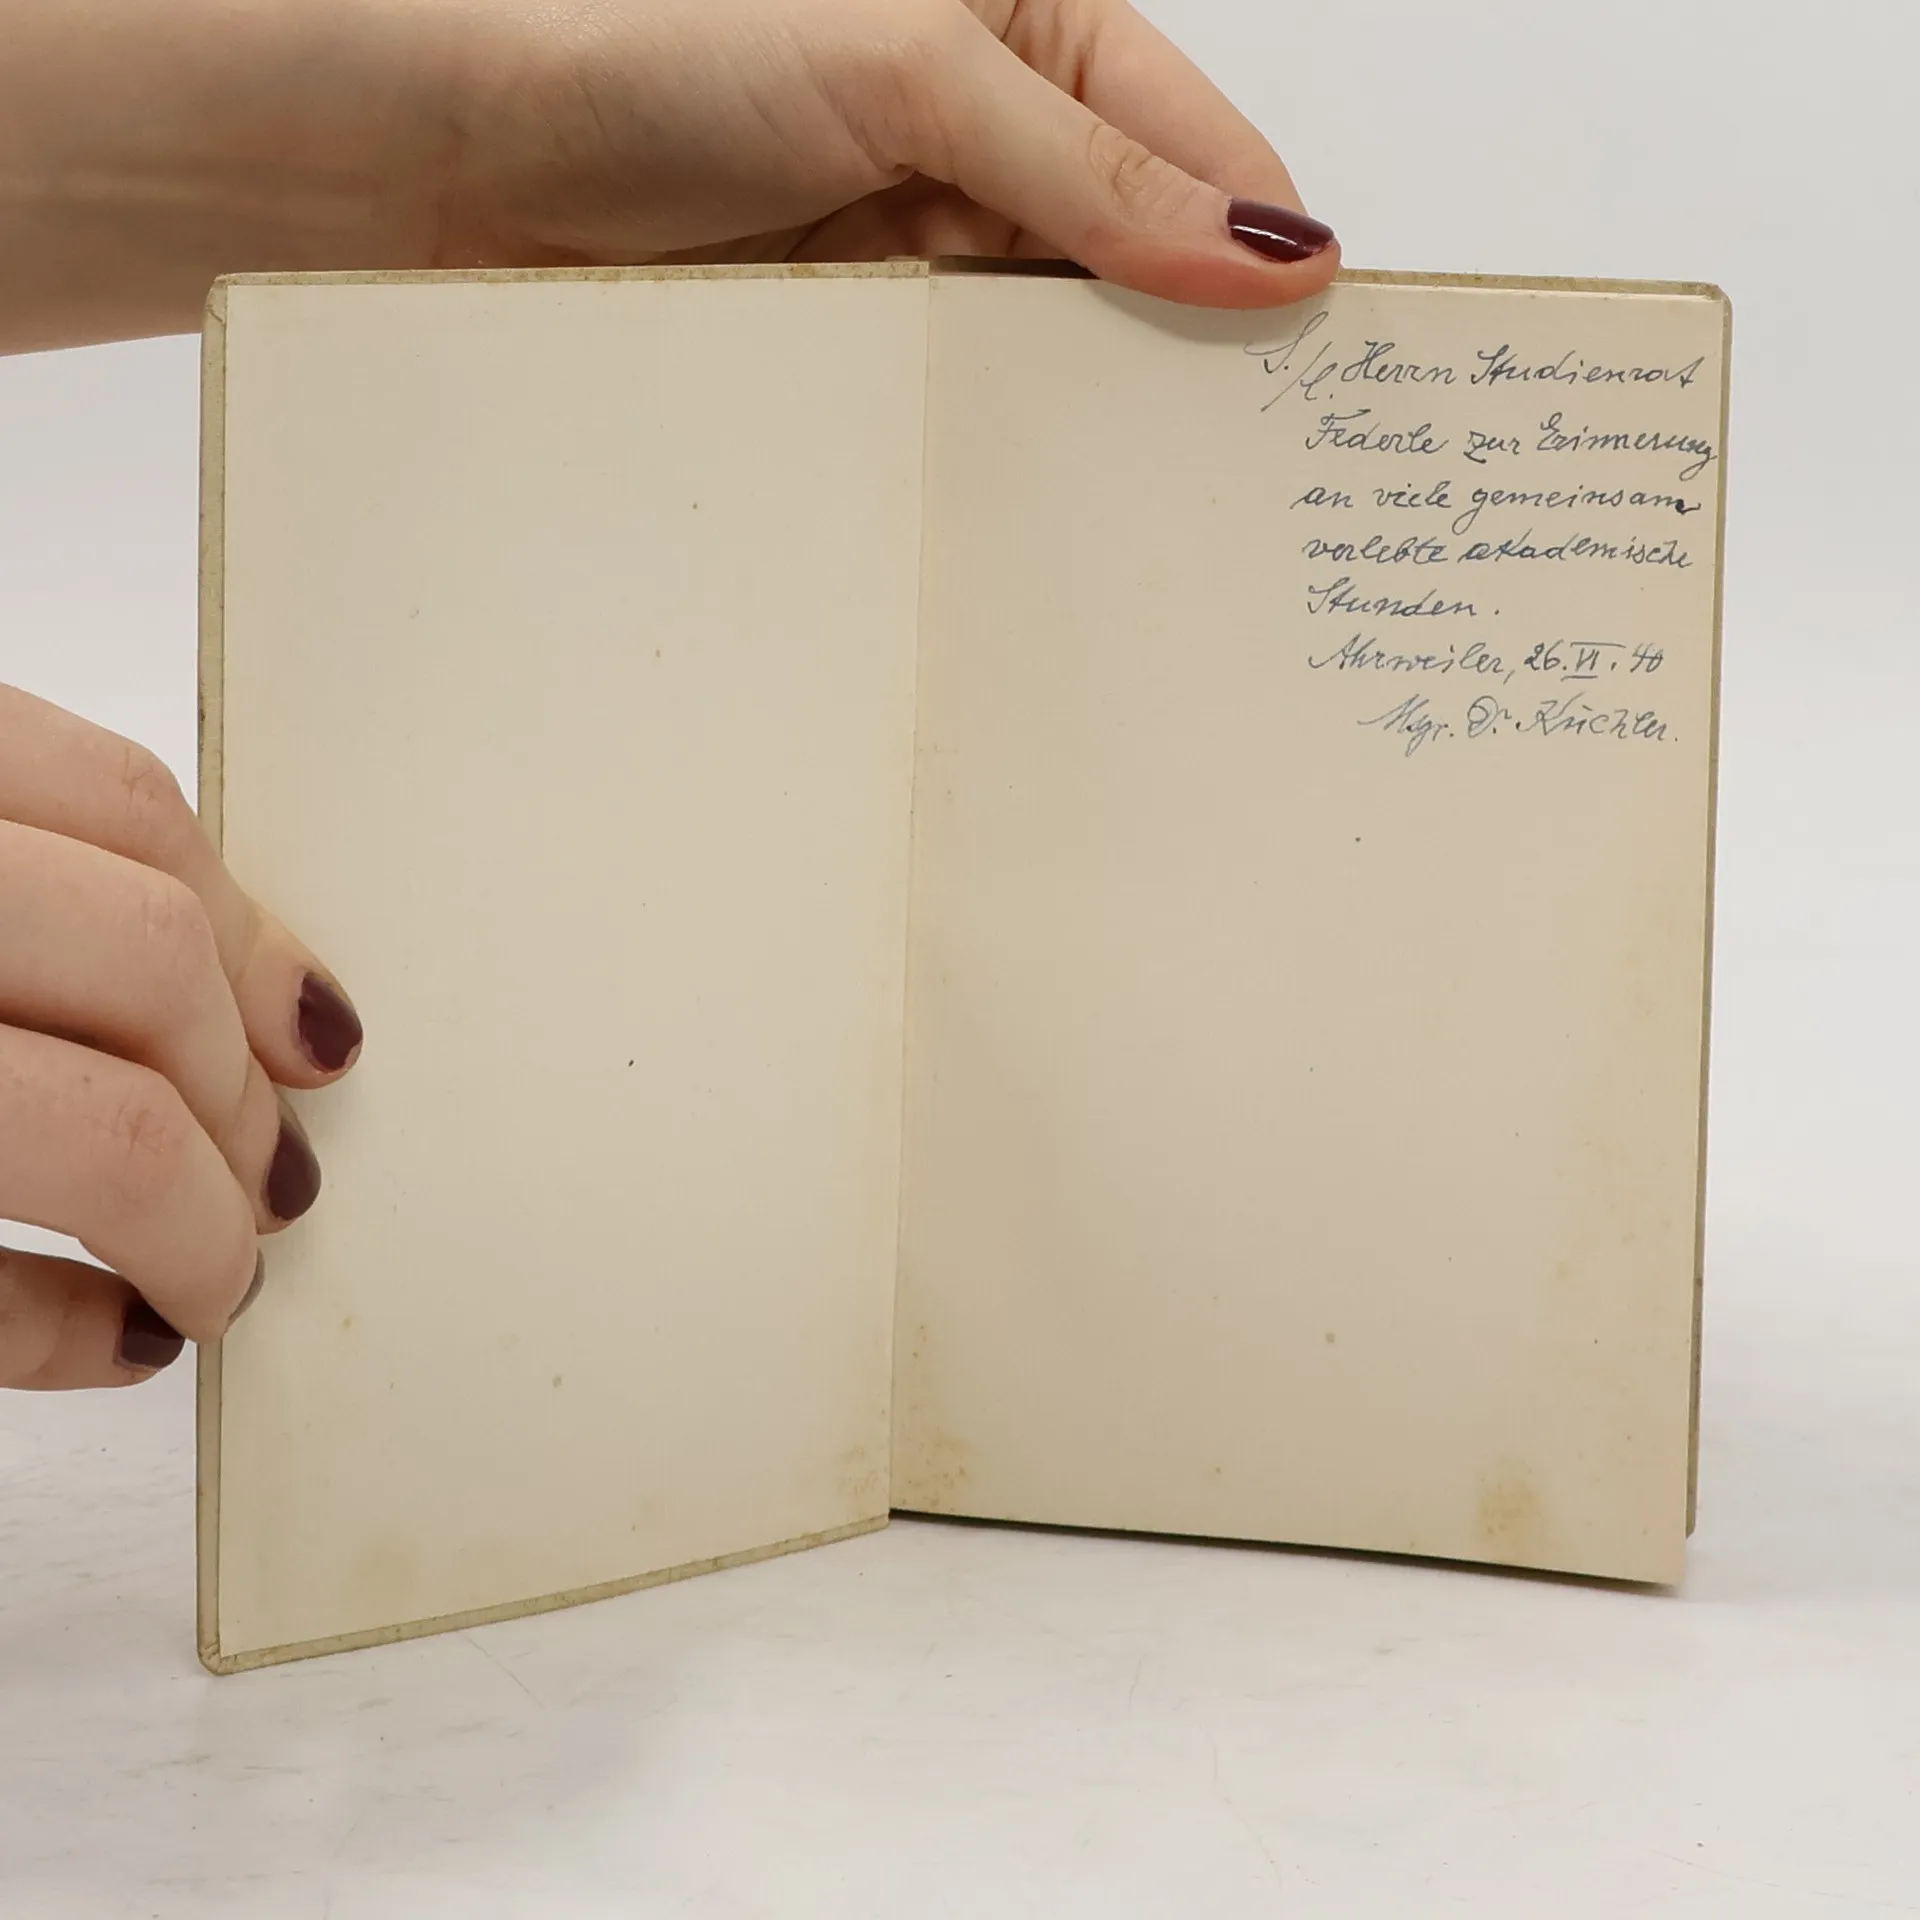 S./l. Herrn Studienrat
Federle zur Erinnerung
an viele gemeinsam
verlebte akademische
Stunden.
Ahrweiler, 26.VI.40
Msgr. Dr. Küchler.